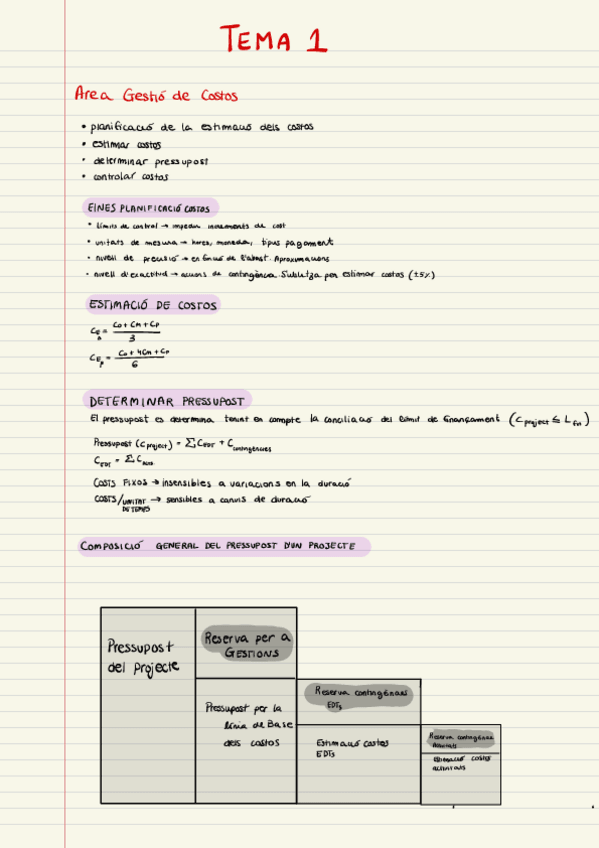 TEMA 1
Area Gestió de Costos
• planificació de la estimació dels costos
• estimar costos
• determinar pressupost
• controlar costos
EINES PLANIFICACIÓ COSTOS
• límits de control → impedir increments de cost
• unitats de mesura → hores, monedes, tipus pagament
• nivell de precisió → en funció de l'abast. Aproximacions
• nivell d'exactitud → acions de contingència. S'utilitza per estimar costos (±5%)
ESTIMACIÓ DE COSTOS
= Co + Cm + Cp / 3
= Co + 4Cm + Cp / 6
DETERMINAR PRESSUPOST
El pressupost es determina tenint en compte la conciliació del límit de finançament (Cproject ≤ Lfin)
Pressupost (Cproject) = ΣCEDT + Ccontingències
CEDT = ΣC
COSTS FIXOS → insensibles a variacions en la duració
COSTS/UNITAT DE TEMPS → sensibles a canvis de duració
COMPOSICIÓ GENERAL DEL PRESSUPOST D'UN PROJECTE
Pressupost
del Projecte
Reserva per a
GESTIONS
Pressupost per la
línia de Base
dels costos
Reserva contingències
EDTs
Estimació costos
EDTs
Reserva contingències
Activitats
Estimació costos
activitats